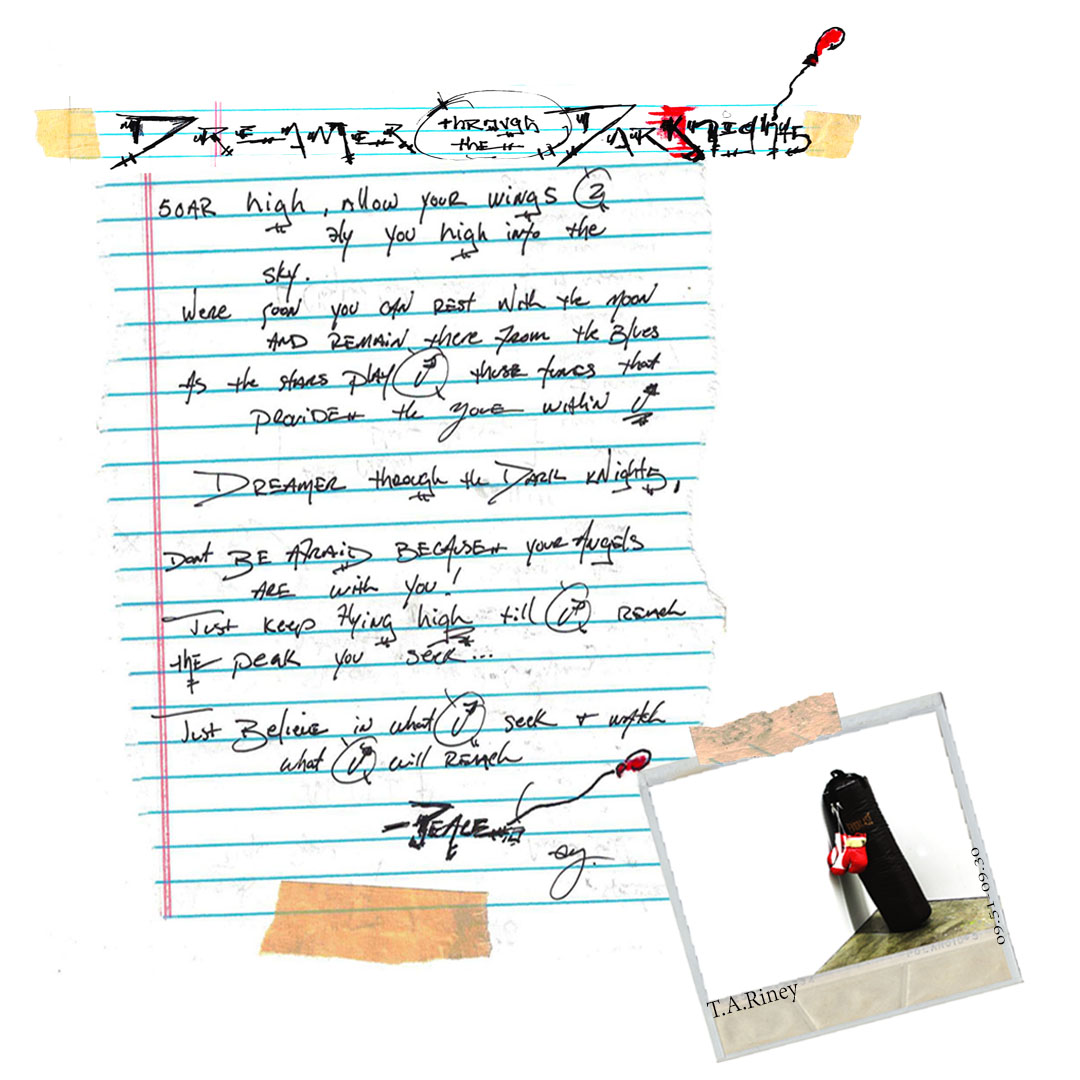 DREAMER through the DARK Knights
SOAR high, Allow your wings 2
fly you high into the
sky.
Were soon you can REST with the moon
AND REMAIN there from the Blues
As the stars play those tunes that
PROVIDE the within
DREAMER through the DARK KNights,
Dont BE AFRAID BECAUSE your Angels
ARE with you!
Just keep flying high till U REACH
the peak you seek...
Just Believe in what U seek + watch
what U will REACH
-PEACE
T.A.Riney
09:51-09:30